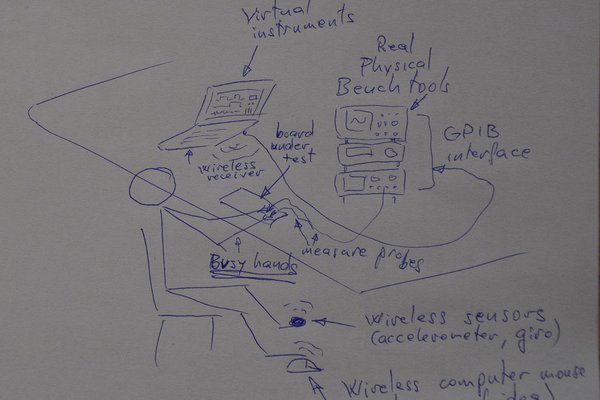 Virtual
instruments
Real
Physical
Bench tools
GPIB
interface
board
under
test
wireless
receiver
measure probes
Busy hands
Wireless sensors
(accelerometer, giro)
Wireless computer mouse